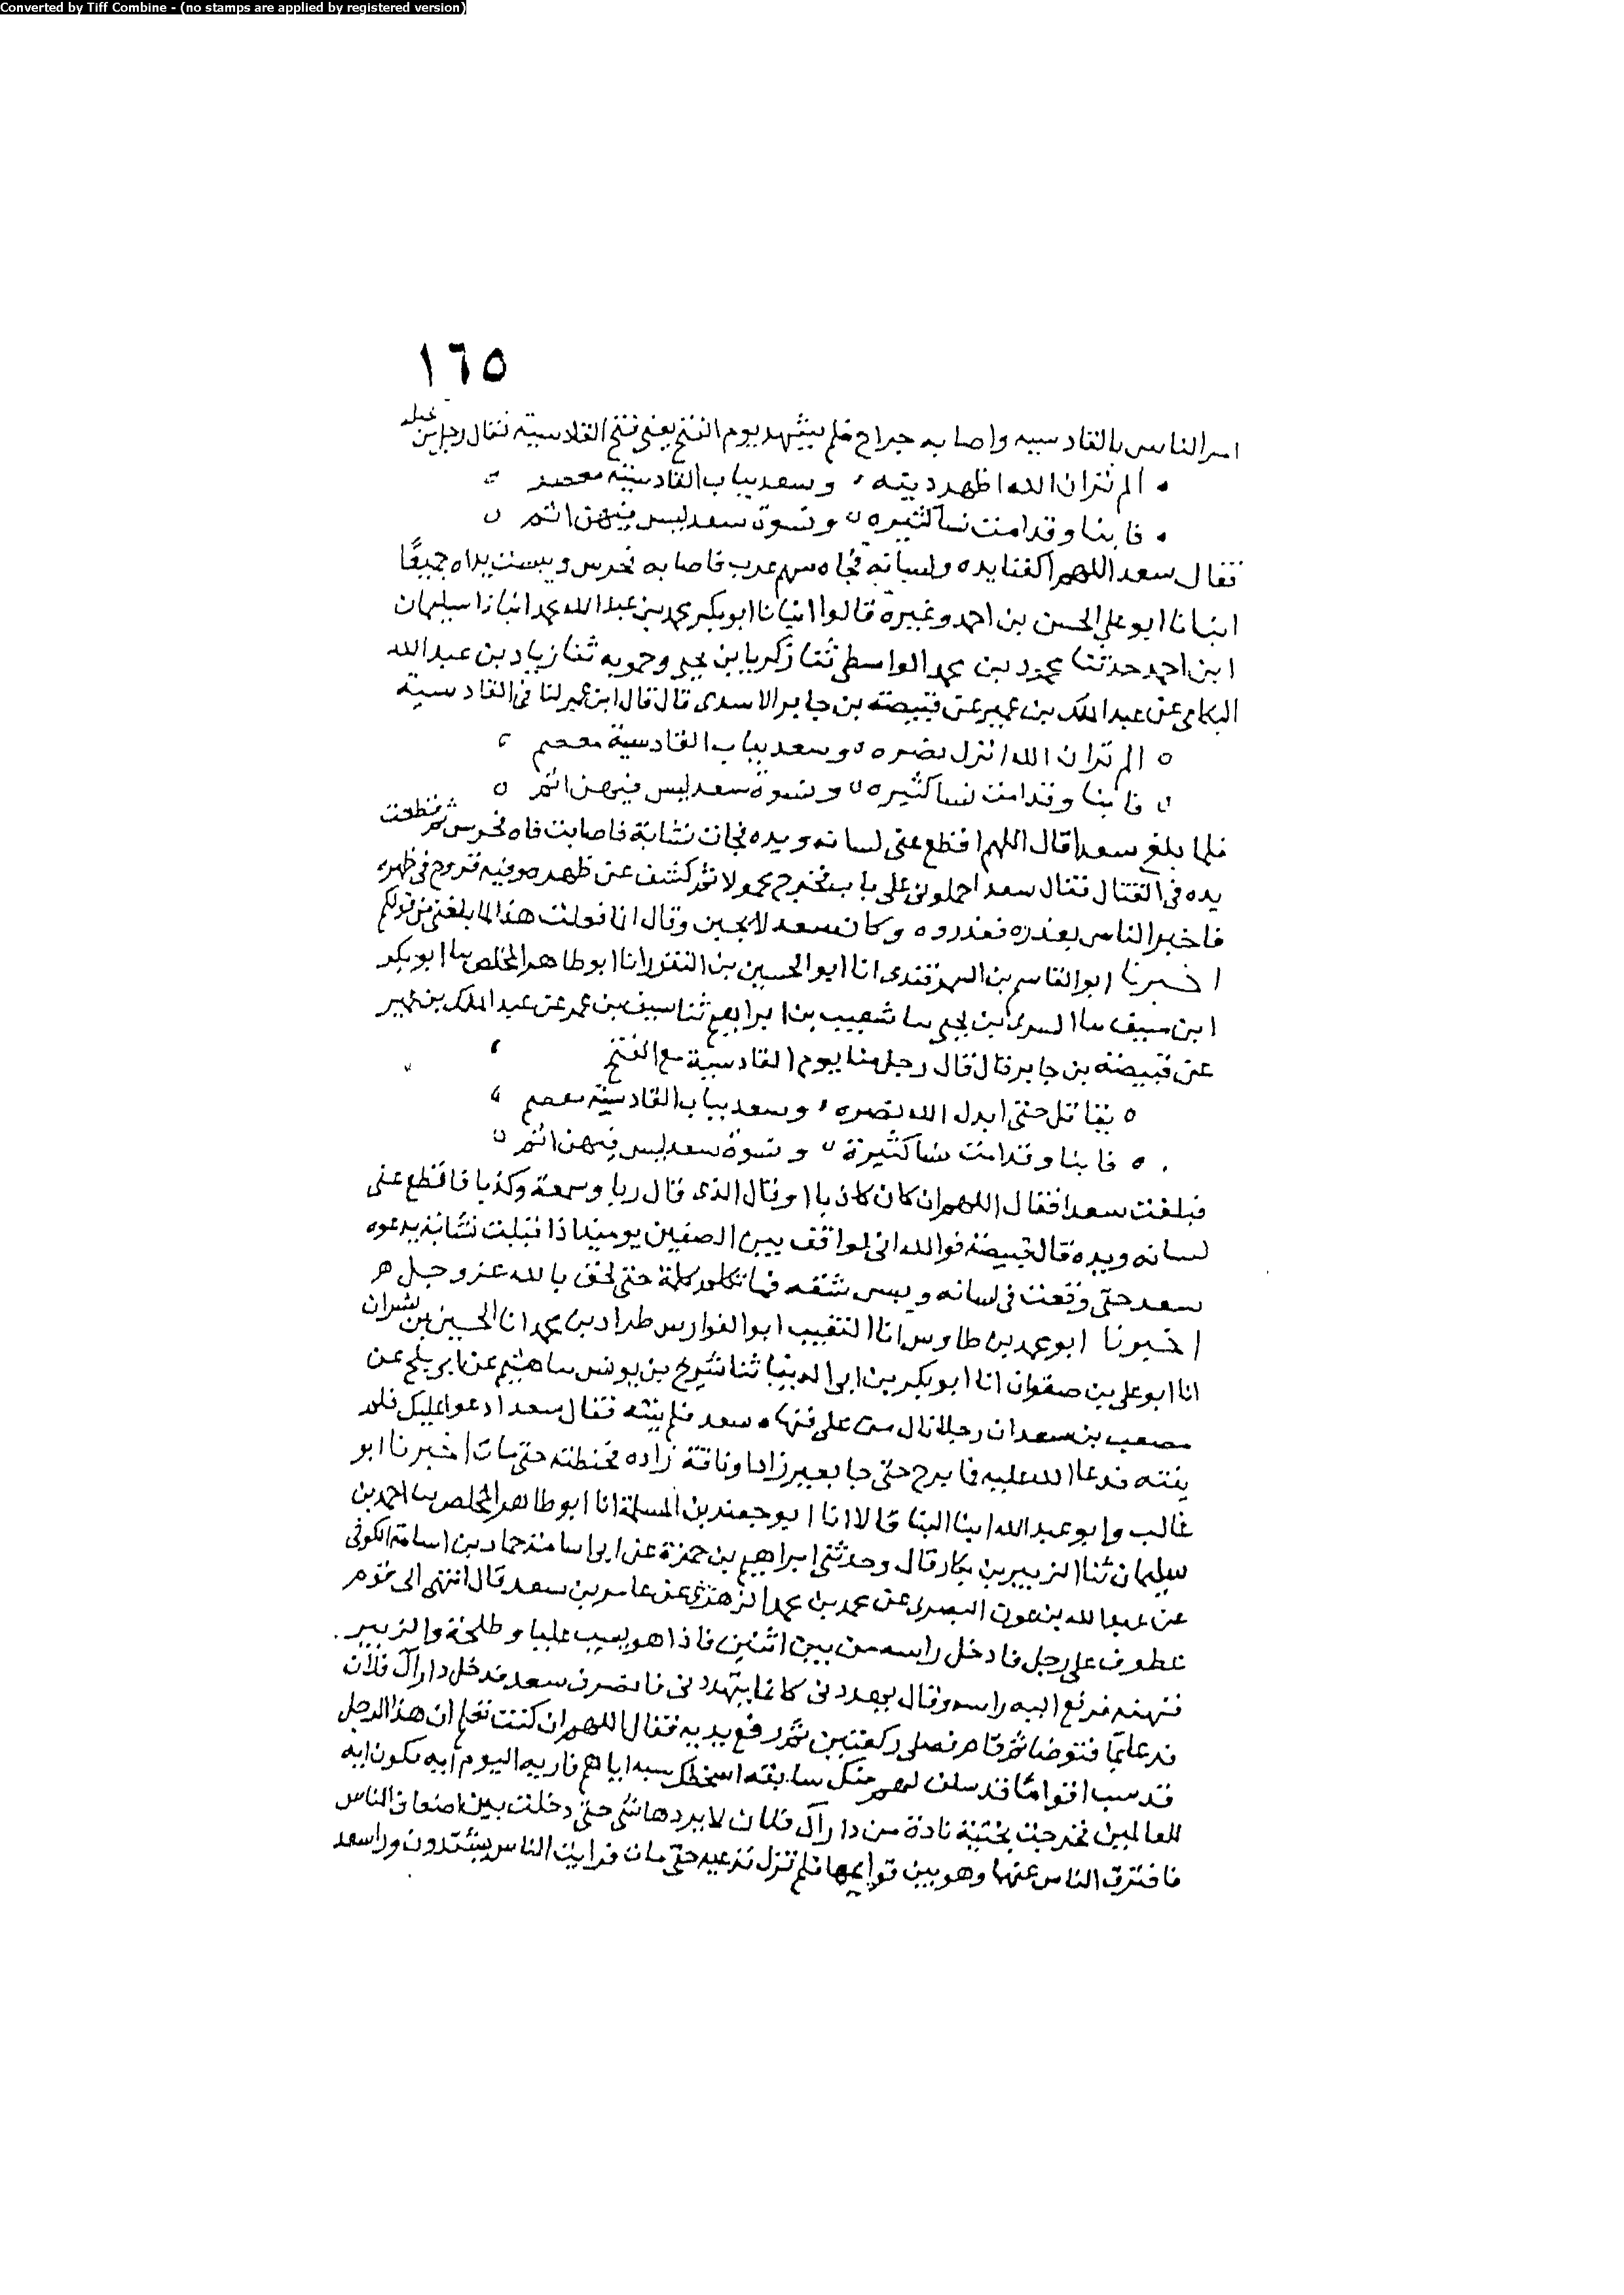 Converted by Tiff Combine - (no stamps are applied by registered version)
١٦٥
امر الناس بالقادسيه واصابه جراح فلم يشهد يوم الفتح يعني فتح القادسية فقال رجل من بجيله
الم تر ان الله اظهر دينه وسعد بباب القادسية معصم
فابنا وقد امت نسا كثيره ونسوة سعد ليس فيهن ائم
فقال سعد اللهم اكفنا يده ولسانه فجاه سهم غرب فاصابه فخرس ويبست يداه جميعًا
انبانا ابو علي الحسن بن احمد وغيره قالوا انبانا ابو بكر محمد بن عبد الله محمد انبانا سليمان
ابن احمد حدثنا محمود بن محمد الواسطى ثنا زكريا بن يحيى وحمويه ثنا زياد بن عبد الله
البكاي عن عبد الملك بن عمير عن قبيصة بن جابر الاسدى قال قال ابن عم لنا في القادسية
الم تر ان الله انزل نصره وسعد بباب القادسية معصم
فابنا وقد امت نسا كثيره ونسوة سعد ليس فيهن ائم
فلما بلغ سعدا قال اللهم اقطع عني لسانه ويده فجات نشابة فاصابت فاه فخرس ثم قطعت
يده في القتال فقال سعد احملوني على باب فخرج به محمولا ثم كشف عن ظهره وفيه قروح في ظهره
فاخبر الناس بعذره فعذروه وكان سعد لا يجبن وقال انما فعلت هذا لما بلغني من قولكم
اخبرنا ابو القاسم بن السمرقندى انا ابو الحسين بن النقور انا ابو طاهر المخلص نا ابو بكر
ابن سيف نا السرى بن يحيى نا شعيب بن ابراهيم ثنا سيف بن عمر عن عبد الملك بن عمير
عن قبيصة بن جابر قال قال رجل منا يوم القادسية مع الفتح
يقاتل حتى ابدل الله نصره وسعد بباب القادسية معصم
فابنا وقد امت نسا كثيرة ونسوة سعد ليس فيهن ائم
فبلغت سعدا فقال اللهم ان كان كاذبا او قال الذى قال ريا وسمعة وكذبا فاقطع عني
لسانه ويده قال قبيصة فوالله اني لواقف بين الصفين يومئذ اذ اقبلت نشابة بدعوه
سعد حتى وقعت في لسانه ويبس شقه فما تكلم كلمة حتى لحق بالله عز وجل
اخبرنا ابو محمد بن طاوس انا النقيب ابو الفوارس طراد بن محمد انا الحسين بن بشران
انا ابو علي بن صفوان انا ابو بكر بن ابي الدنيا ثنا شريح بن يونس نا هشيم عن ابي بلج عن
مصعب بن سعد ان رجلا نال من علي فنهاه سعد فلم ينته فقال سعد ادعو عليك فلم
ينته فدعا الله عليه فما برح حتى جا بعير ناد او ناقة ناده فخبطته حتى مات اخبرنا ابو
غالب وابو عبد الله ابنا البنا قالا انا ابو جعفر بن المسلمة انا ابو طاهر المخلص نا احمد بن
سليمان ثنا الزبير بن بكار قال وحدثني ابراهيم بن حمزة عن ابى اسامة حماد بن اسامة الكوفي
عن عبد الله بن عون البصرى عن محمد بن محمد الزهري عن عامر بن سعد قال انتهى الى قوم
عطوف على رجل فادخل راسه من بين اثنين فاذا هو يسب عليا وطلحة والزبير
فنهنه فرفع اليه راسه وقال يهددني كانما يتهددني فانصرف سعد فدخل دار آل فلان
فدعا بما فتوضا ثم قام فصلى ركعتين ثم رفع يديه فقال اللهم ان كنت تعلم ان هذا الرجل
قد سب اقواما قد سلف لهم منك سابقة اسخطك سبه اياهم فاريه اليوم آية تكون آية
للعالمين فخرجت بختية نادة من دار آل فلان لا يردها شى حتى دخلت بين اضعاف الناس
فافترق الناس عنها وهو بين قوايمها فلم تزل تدعيه حتى مات فرايت الناس يشتدون ورا سعد